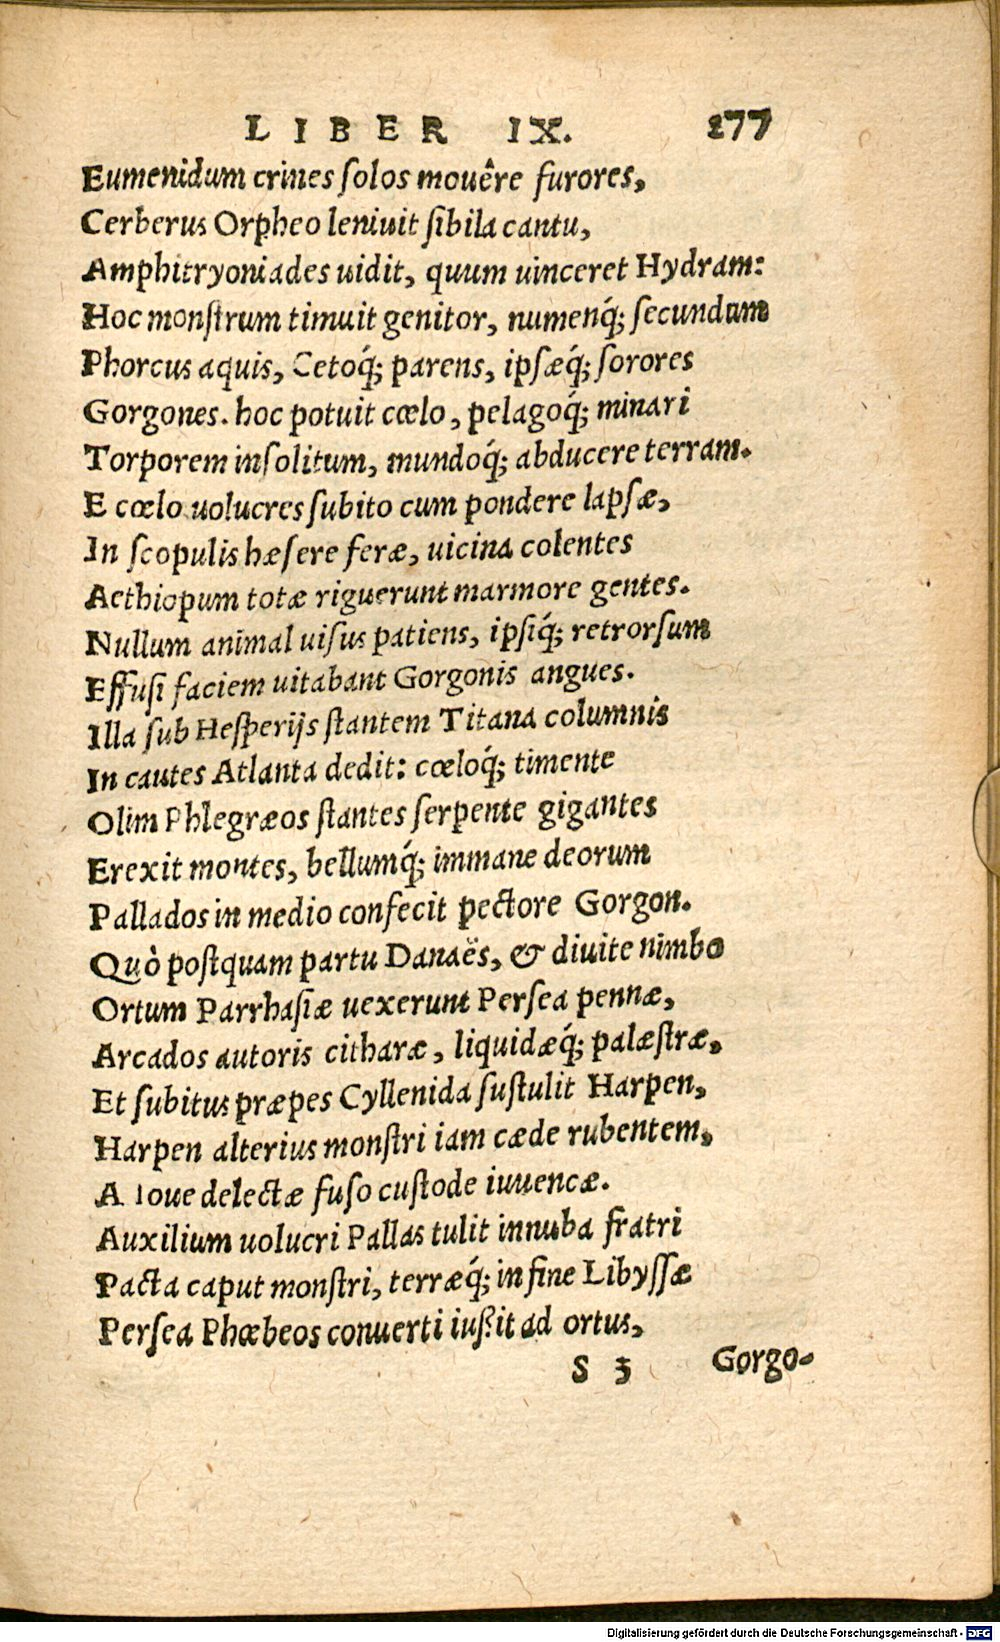 LIBER IX. 277
Eumenidum crines ſolos mouêre furores,
Cerberus Orpheo leniuit ſibila cantu,
Amphitryoniades uidit, quum uinceret Hydram:
Hoc monſtrum timuit genitor, numenq́; ſecundum
Phorcus aquis, Cetoq́; parens, ipſæq́; ſorores
Gorgones. hoc potuit cœlo, pelagoq́; minari
Torporem inſolitum, mundoq́; abducere terram.
E cœlo uolucres ſubito cum pondere lapſæ,
In ſcopulis hæſere feræ, uicina colentes
Aethiopum totæ riguerunt marmore gentes.
Nullum animal uiſus patiens, ipſiq́; retrorſum
Effuſi faciem uitabant Gorgonis angues.
Illa ſub Heſperijs ſtantem Titana columnis
In cautes Atlanta dedit: cœloq́; timente
Olim Phlegræos ſtantes ſerpente gigantes
Erexit montes, bellumq́; immane deorum
Pallados in medio confecit pectore Gorgon.
Quò poſtquam partu Danaës, & diuite nimbo
Ortum Parrhaſiæ uexerunt Perſea pennæ,
Arcados autoris citharæ, liquidæq́; palæſtræ,
Et ſubitus præpes Cyllenida ſuſtulit Harpen,
Harpen alterius monſtri iam cæde rubentem,
A Ioue delectæ fuſo cuſtode iuuencæ.
Auxilium uolucri Pallas tulit innuba fratri
Pacta caput monſtri, terræq́; in fine Libyſſæ
Perſea Phœbeos conuerti iußit ad ortus,
S 3 Gorgo-
Digitalisierung gefördert durch die Deutsche Forschungsgemeinschaft - DFG